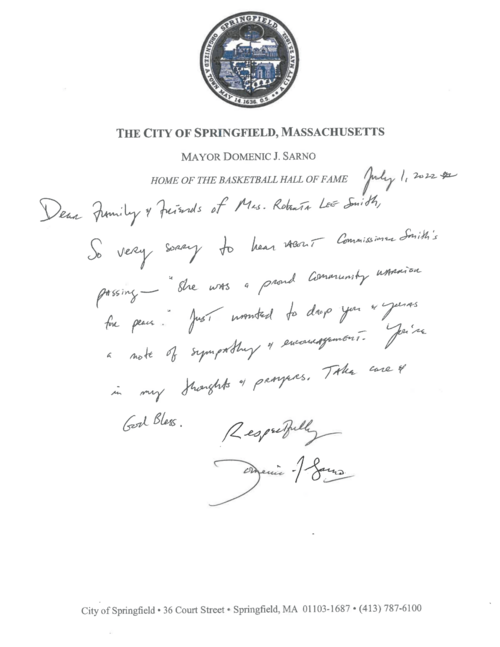 SPRINGFIELD,
MAY 14 1636.
THE CITY OF SPRINGFIELD, MASSACHUSETTS
MAYOR DOMENIC J. SARNO
HOME OF THE BASKETBALL HALL OF FAME July 1, 2022
Dear Family & Friends of Mrs. Roberta Lee Smith,
So very sorry to hear about Commissioner Smith's
passing — "She was a proud community warrior
for peace." Just wanted to drop you & yours
a note of sympathy & encouragement. You're
in my thoughts & prayers. Take care &
God Bless.
Respectfully
Domenic J Sarno
City of Springfield • 36 Court Street • Springfield, MA 01103-1687 • (413) 787-6100